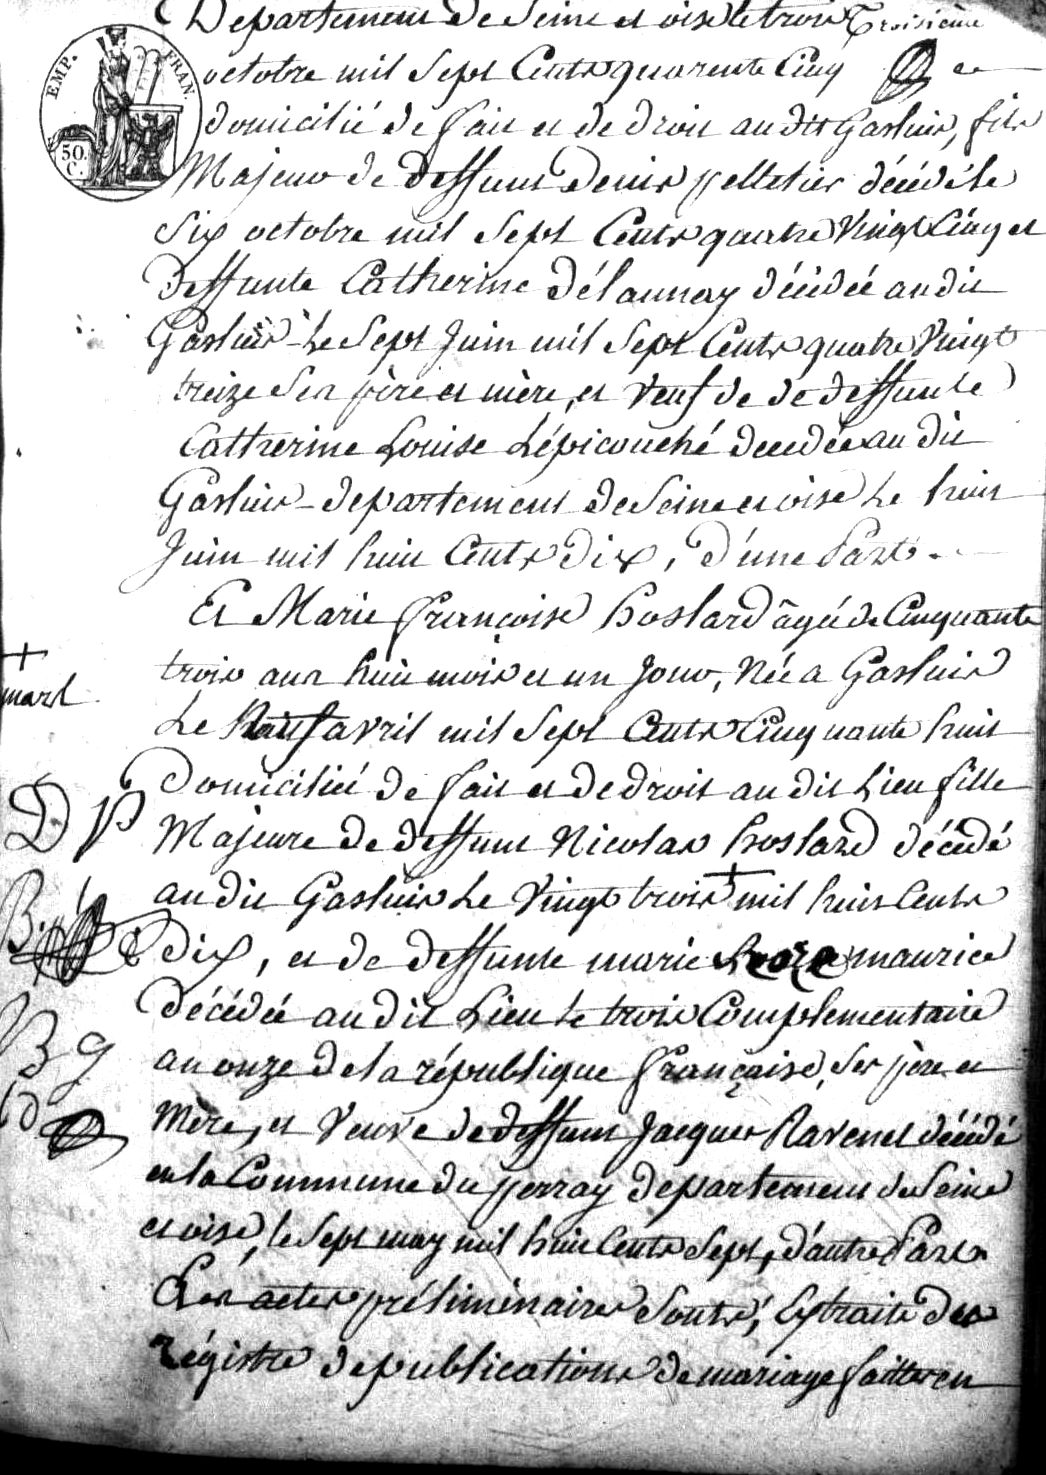 Departement de Seine et oise le trois Troisième
EMP. FRAN.
50. C.
octobre mil Sept Cents quarente Cinq
domicilié de fait et de droit au dit Gashuis, fils
Majeur de deffunt Denis pelletier décédé le
Six octobre mil Sept Cents quatre Vingt Cinq et
Deffunte Catherine Délaunay décédée au dit
Gashuis Le Sept Juin mil Sept Cents quatre Vingt
treize Ses père et mère, et Veuf de de deffunte
Catherine Louise Lépicouché decedée au dit
Gashuis departement de Seine et oise Le huit
Juin mil huit Cents Dix, D'une Part.
Et Marie françoise hoslard âgée de Cinquante
trois ans huit mois et un Jour, Née a Gashuis
mars
Le Neuf avril mil Sept Cents Cinquante huit
Domicilié de fait et de droit au dit Lieu fille
D P
Majeure de deffunt Nicolas hoslard décédé
au dit Gashuis Le Vingt trois mil huit Cents
dix, et de deffunte marie maurice
Décédée au dit Lieu le trois Complementaire
B g
an onze de la république française, Ses père et
Mère, et Veuve de deffunt Jacques Ravenel décédé
en la Commune du perray departement de Seine
et oise, le Sept may mil huit Cents Sept, d'autre Part
Les actes préliminaires Sonts, Extraits des
régistre de publications de mariage faittes en